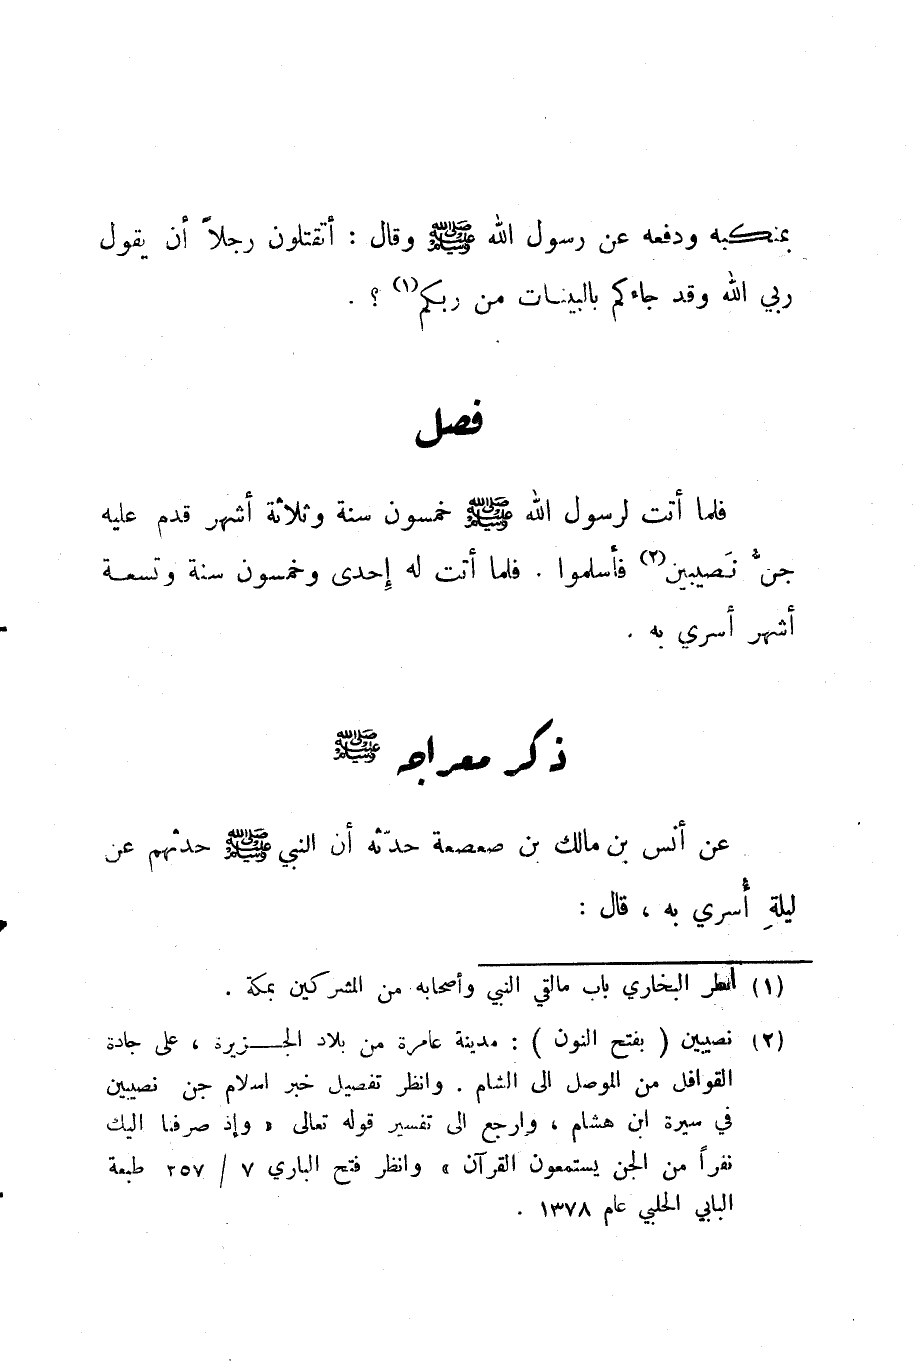 بمنكبه ودفعه عن رسول الله ﷺ وقال : أتقتلون رجلاً أن يقول
ربي الله وقد جاءكم بالبينات من ربكم(١) ؟ .
فصل
فلما أتت لرسول الله ﷺ خمسون سنة وثلاثة أشهر قدم عليه
جنُّ نَصيبين(٢) فأسلموا . فلما أتت له إِحدى وخمسون سنة وتسعة
أشهر أسري به .
ذكر معراجه ﷺ
عن أنس بن مالك بن صعصعة حدّثه أن النبي ﷺ حدثهم عن
ليلةِ أُسري به ، قال :
(١) أنظر البخاري باب مالقي النبي وأصحابه من المشركين بمكة .
(٢) نصيبين ( بفتح النون ) : مدينة عامرة من بلاد الجزيرة ، على جادة
القوافل من الموصل الى الشام . وانظر تفصيل خبر اسلام جن نصيبين
في سيرة ابن هشام ، وارجع الى تفسير قوله تعالى « وإذ صرفنا اليك
نفراً من الجن يستمعون القرآن » وانظر فتح الباري ٧ / ٢٥٧ طبعة
البابي الحلبي عام ١٣٧٨ .